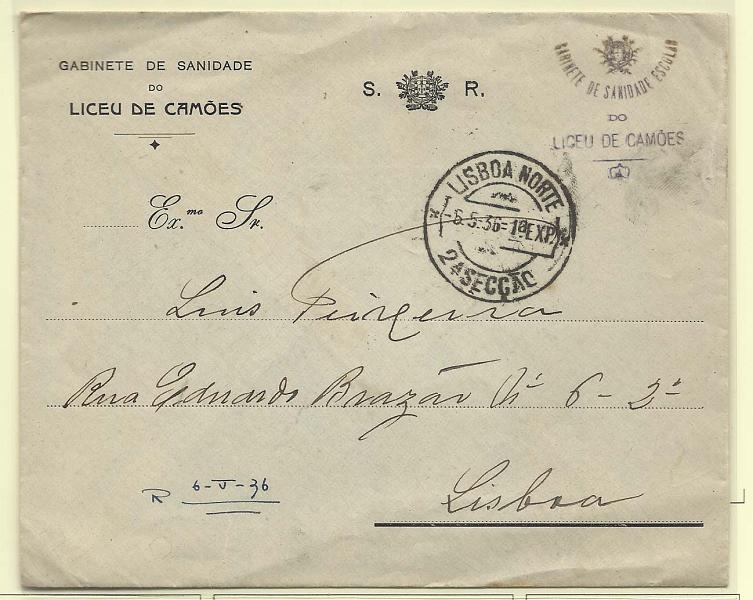 GABINETE DE SANIDADE
DO
LICEU DE CAMÕES
S. R.
GABINETE DE SANIDADE ESCOLAR
DO
LICEU DE CAMÕES
LISBOA NORTE
-6.5.36=1ªEXP.
2ªSECÇÃO
Ex.mo Sr.
Luis Teixeira
Rua Eduardo Brazão Nº 6 - 2º
Lisboa
R 6-V-36